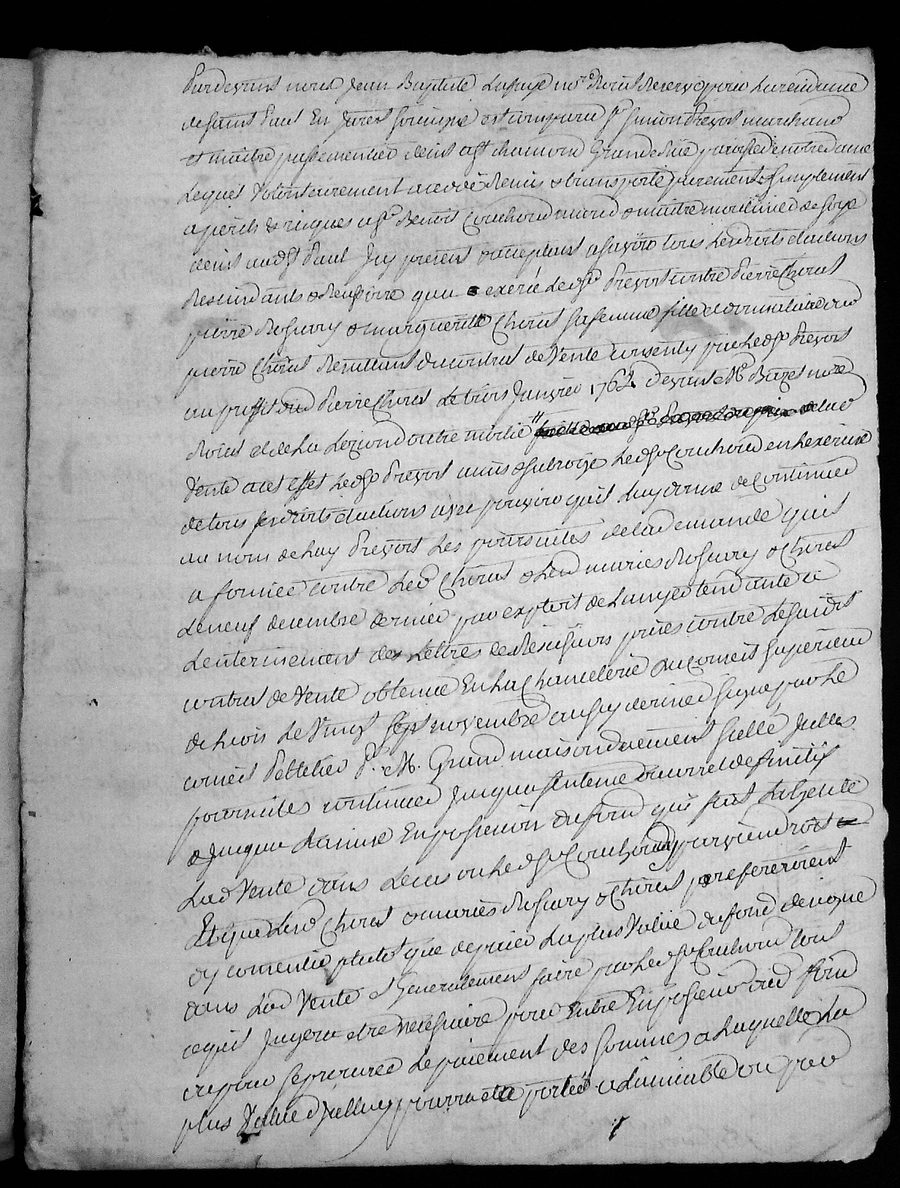 Pardevant nous Jean Baptiste Lafuye nore Roial Reservé pour la residance
de Saint Paul En Jarest soussigné est comparu sr Simon Prevost marchand
et maitre passementier dem.t a st chamond Grande Rue paroisse de notre dame
Lequel Volontairement a cedé Remis & transporté purement & simplement
a perils & risques a sr Benoit Couchoud marchd & maitre moulinier de soye
dem.t aud st Paul Icy present & acceptant a scavoir tous les droits & actions
Rescindants & Rescisoire que exercé led sr Prevost contre Pierre Chirat
pierre & marguerite Chirat sa femme fille et donnataire dud
pierre Chirat Resultant du contrat de Vente consenty par led sr Prevost
au proffit dud Pierre Chirat le trois Janvier 1762 devant Me Bazet nore
Roial de la
Vente a cet effet led sr Prevost a mis & subrogé led sr Couchoud en l'exercice
de tous ses droits & actions avec pouvoir qu'il luy donne de continuer
au nom de luy Prevost les poursuites de la demande qu'il
a formée contre led Chirat & led mariés & Chirat
le neuf decembre dernier par exploit de tendante a
L'enterinement des Lettres de Rescision prises contre le susdit
contrat de Vente obtenue En la Chancelerie du Conseil superieur
de Lyon le Vingt sept novembre aussy dernier signé par le
conseil Pelletier sr & M. Grandmaison duement scellé Jcelles
poursuites continuer jusqu'a sentence ou arret definitif
& jusqu'a la mise En possession du fond qui fait l'objet de
Lad Vente dans le cas ou led sr Couchoud y parviendroit
Et que led Chirat & mariés & Chirat prefereroient
y consentir plutot que de paier la plus Value du fond denoncé
dans Lad Vente & Generalement faire par led sr Couchoud tout
ce qu'il Jugera etre necessaire pour Entrer En possession dud fond
ou pour se procurer le paiement des sommes a laquelle La
plus Value d'Jcelluy pourra etre portée a l'amiable ou par